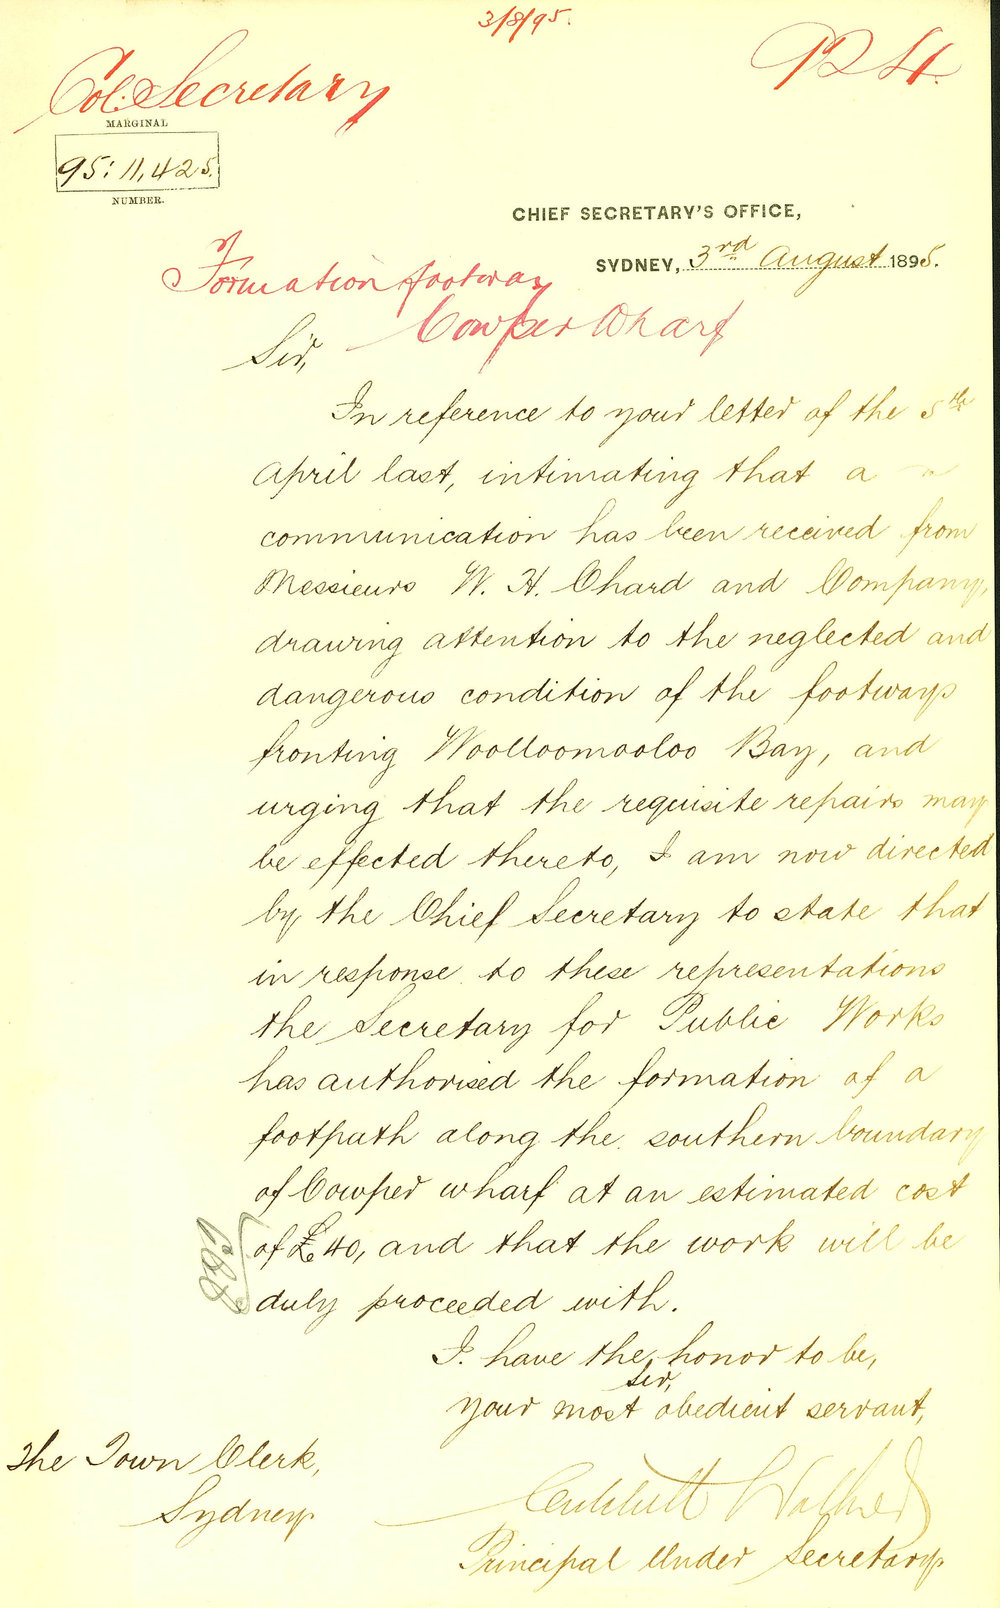 3/8/95.
924.
Col: Secretary
MARGINAL
95: 11,425.
NUMBER.
CHIEF SECRETARY'S OFFICE,
SYDNEY, 3rd August 1895.
Formation footway
Cowper Wharf
Sir,
In reference to your letter of the 5th
April last, intimating that a
communication has been received from
Messieurs W. H. Chard and Company,
drawing attention to the neglected and
dangerous condition of the footways
fronting Woolloomooloo Bay, and
urging that the requisite repairs may
be effected thereto, I am now directed
by the Chief Secretary to state that
in response to these representations
the Secretary for Public Works
has authorised the formation of a
footpath along the southern boundary
of Cowper wharf at an estimated cost
of £40, and that the work will be
duly proceeded with.
I have the honor to be,
Sir,
your most obedient servant,
Critchett Walker
Principal Under Secretary.
The Town Clerk,
Sydney.